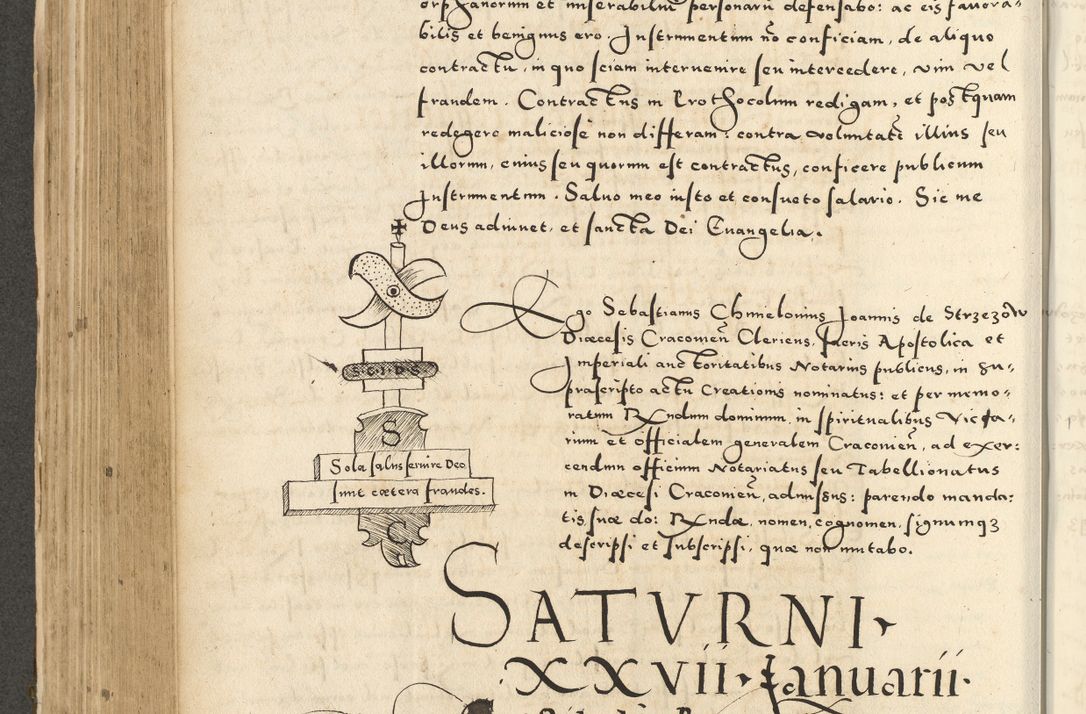 orphanorum et miserabilium personarum defensabo: ac eis favora-
bilis et benignus ero. Instrumentum nō conficiam, de aliquo
contractu, in quo sciam intervenire seu intercedere, vim vel
fraudem. Contractus in Prothocolum redigam, et postquam
redegero maliciose non differam: contra voluntatē illius seu
illorum, cuius seu quorum est contractus, conficere publicum
Instrumentum. Salvo meo iusto et consueto salario. Sic me
Deus adiuvet, et sancta Dei Evangelia.
Ego Sebastianus Chmelovius Joannis de Strzezòw
Diœcesis Cracovień Clericus, sacris Apostolica et
Imperiali auctoritatibus Notarius publicus, in su-
prascripto actu Creationis nominatus: et per memo-
ratum Rndum dominum in spiritualibus Vica-
rium et officialem generalem Cracovień, ad exer:
cendum officium Notariatus seu Tabellionatus
in Diœcesi Cracovień, admissus: parendo manda:
tis suæ do: Rndæ, nomen, cognomen, signumq3
descripsi et subscripsi, quæ non mutabo.
S
Sola salus servire Deo
sunt cœtera fraudes.
C
SATVRNI
XXVII Januarii